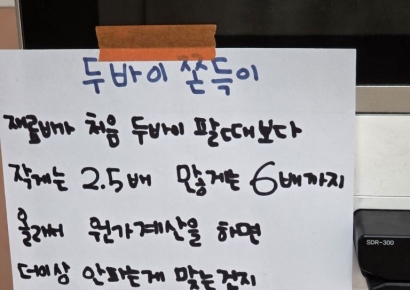 두바이 쫀득이
재료비가 처음 두바이 팔때보다
작게는 2.5배 많게는 6배까지
올라서 원가계산을 하면
더이상 안파는게 맞는건지
SDR-300